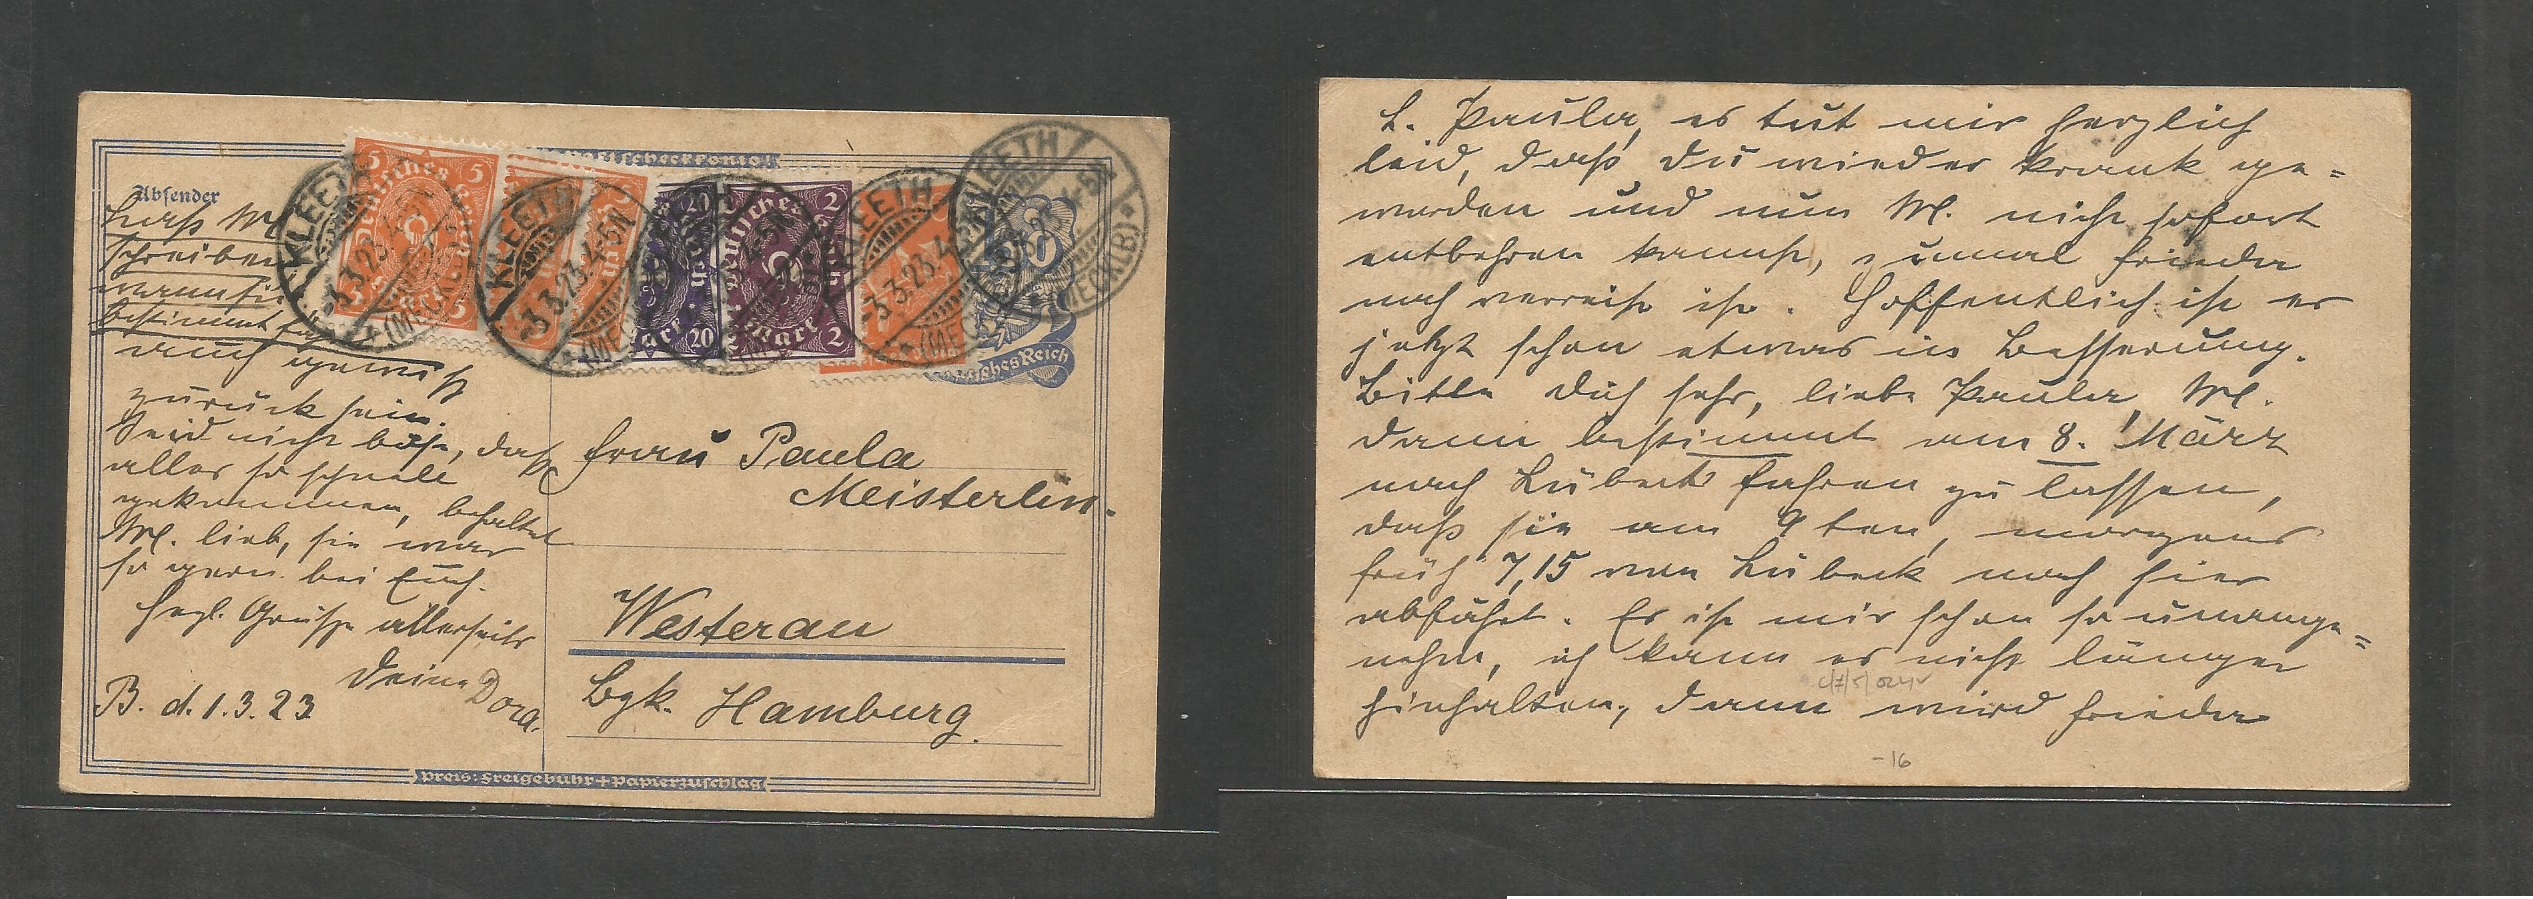 Absender
Lass M.
schreiben
wann sie
bestimmt
auch gewiß
zurück sein.
Seid nicht böse, daß
alles so schnell
gekommen, behaltet
M. lieb, sie war
so gern bei Euch.
Herzl. Grüße allerseits
Deine Dora.
B. d. 1.3.23
5 5
5
20
20
2
2 2
KLEETH
-3.3.23.4-5N
*(MECKLB)*
Deutsches Reich
Frau Paula
Meisterlin.
Westerau
Bzk. Hamburg.
Preis: Freigebühr + Papierzuschlag
L. Paula, es tut mir herzlich
leid, daß Du wieder krank ge=
worden und nun M. nicht sofort
entbehren kannst, zumal Frieda
noch verreist ist. Hoffentlich ist es
jetzt schon etwas in Besserung.
Bitte Dich sehr, liebe Paula, M.
dann bestimmt am 8. März
nach Lübeck fahren zu lassen,
daß sie am 9ten, morgens
früh 7,15 von Lübeck nach hier
abfährt. Es ist mir schon so unange=
nehm, ich kann es nicht länger
hinhalten, dann wird Frieda
-16